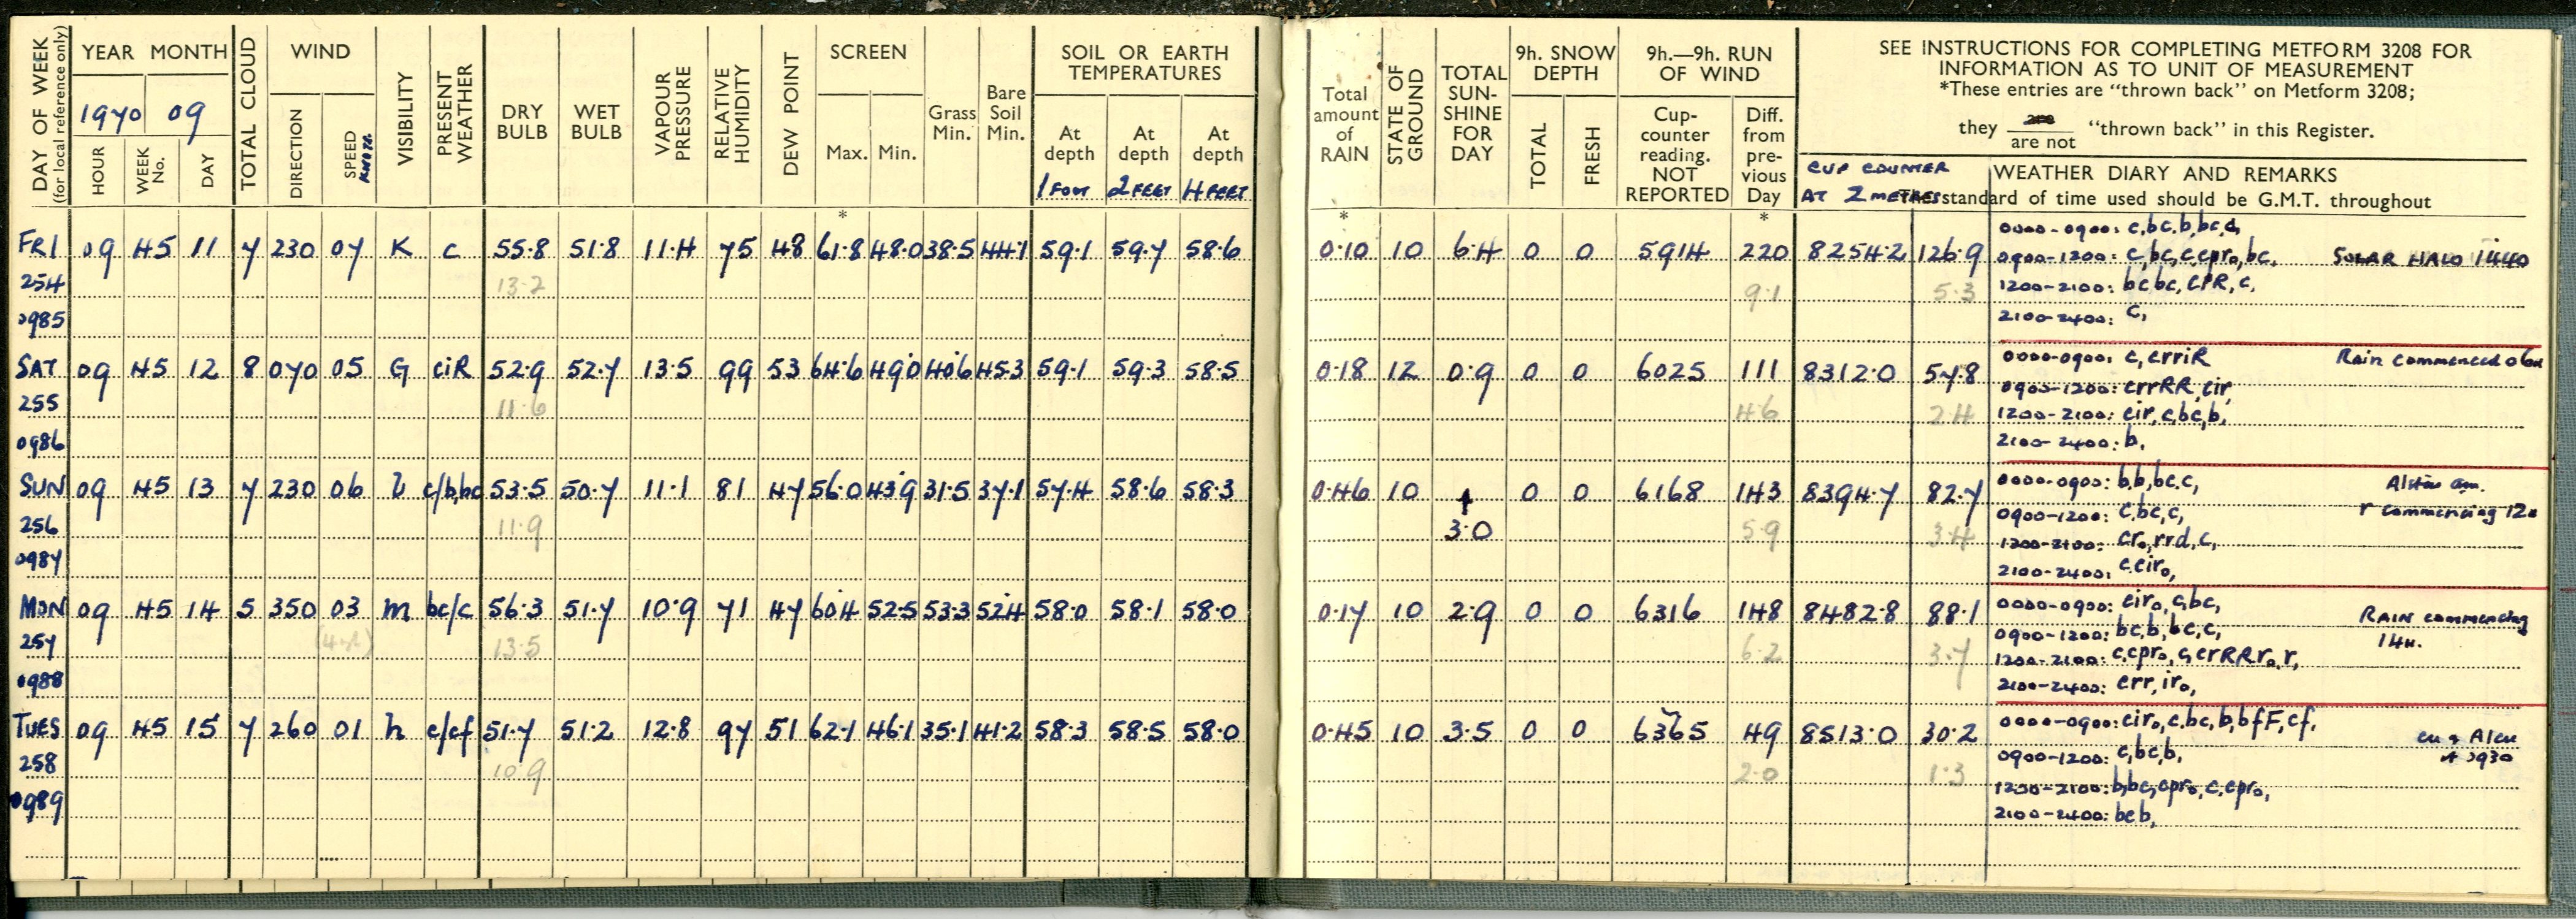 DAY OF WEEK
(for local reference only)
YEAR MONTH
1970 09
HOUR WEEK No. DAY
TOTAL CLOUD
WIND
DIRECTION SPEED KNOTS.
VISIBILITY
PRESENT WEATHER
DRY BULB
WET BULB
VAPOUR PRESSURE
RELATIVE HUMIDITY
DEW POINT
SCREEN
Max. Min.
Grass Min.
Bare Soil Min.
SOIL OR EARTH TEMPERATURES
At depth 1 FOOT At depth 2 FEET At depth 4 FEET
Total amount of RAIN
STATE OF GROUND
TOTAL SUN-SHINE FOR DAY
9h. SNOW DEPTH
TOTAL FRESH
9h.—9h. RUN OF WIND
Cup-counter reading. NOT REPORTED
Diff. from pre-vious Day
SEE INSTRUCTIONS FOR COMPLETING METFORM 3208 FOR
INFORMATION AS TO UNIT OF MEASUREMENT
*These entries are "thrown back" on Metform 3208;
they are / are not "thrown back" in this Register.
CUP COUNTER
AT 2 METRES
WEATHER DIARY AND REMARKS
The standard of time used should be G.M.T. throughout
* * *
FRI 09 45 11 7 230 07 K c 55.8 51.8 11.4 75 48 61.8 48.0 38.5 44.1 59.1 59.7 58.6 0.10 10 6.4 0 0 5914 220 8254.2 126.9
254 13.2 9.1 5.3
0985
0000-0900: c,bc,b,bc,c,
0900-1200: c,bc,c,cpro,bc, SOLAR HALO 1440
1200-2100: bcbc, cPR, c,
2100-2400: c,
SAT 09 45 12 8 070 05 G ciR 52.9 52.7 13.5 99 53 64.6 49.0 40.6 45.3 59.1 59.3 58.5 0.18 12 0.9 0 0 6025 111 8312.0 57.8
255 11.6 4.6 2.4
0986
0000-0900: c, crriR Rain commenced
0900-1200: crrRR, cir,
1200-2100: cir, c,bc,b,
2100-2400: b,
SUN 09 45 13 7 230 06 c/b,bc 53.5 50.7 11.1 81 47 56.0 43.9 31.5 37.1 57.4 58.6 58.3 0.46 10 3.0 0 0 6168 143 8394.7 82.7
256 11.9 5.9 3.4
0987
0000-0900: b,b,bc,c,
0900-1200: c,bc,c, r commencing
1200-2100: cro,rrd,c,
2100-2400: c,ciro,
MON 09 45 14 5 350 03 m bc/c 56.3 51.7 10.9 71 47 60.4 52.5 53.3 52.4 58.0 58.1 58.0 0.17 10 2.9 0 0 6316 148 8482.8 88.1
257 13.5 6.2 3.7
0988
0000-0900: ciro, c,bc,
0900-1200: bc,b,bc,c, RAIN commencing
1200-2100: c,cpro, c,crRRro,r, 14H.
2100-2400: crr,iro,
TUES 09 45 15 7 260 01 h c/cf 51.7 51.2 12.8 97 51 62.1 46.1 35.1 41.2 58.3 58.5 58.0 0.45 10 3.5 0 0 6365 49 8513.0 30.2
258 10.9 2.0 1.3
0989
0000-0900: ciro,c,bc,b,bfF,cf.
0900-1200: c,bc,b,
1200-2100: b,bc,cpro,c,cpro,
2100-2400: bcb,